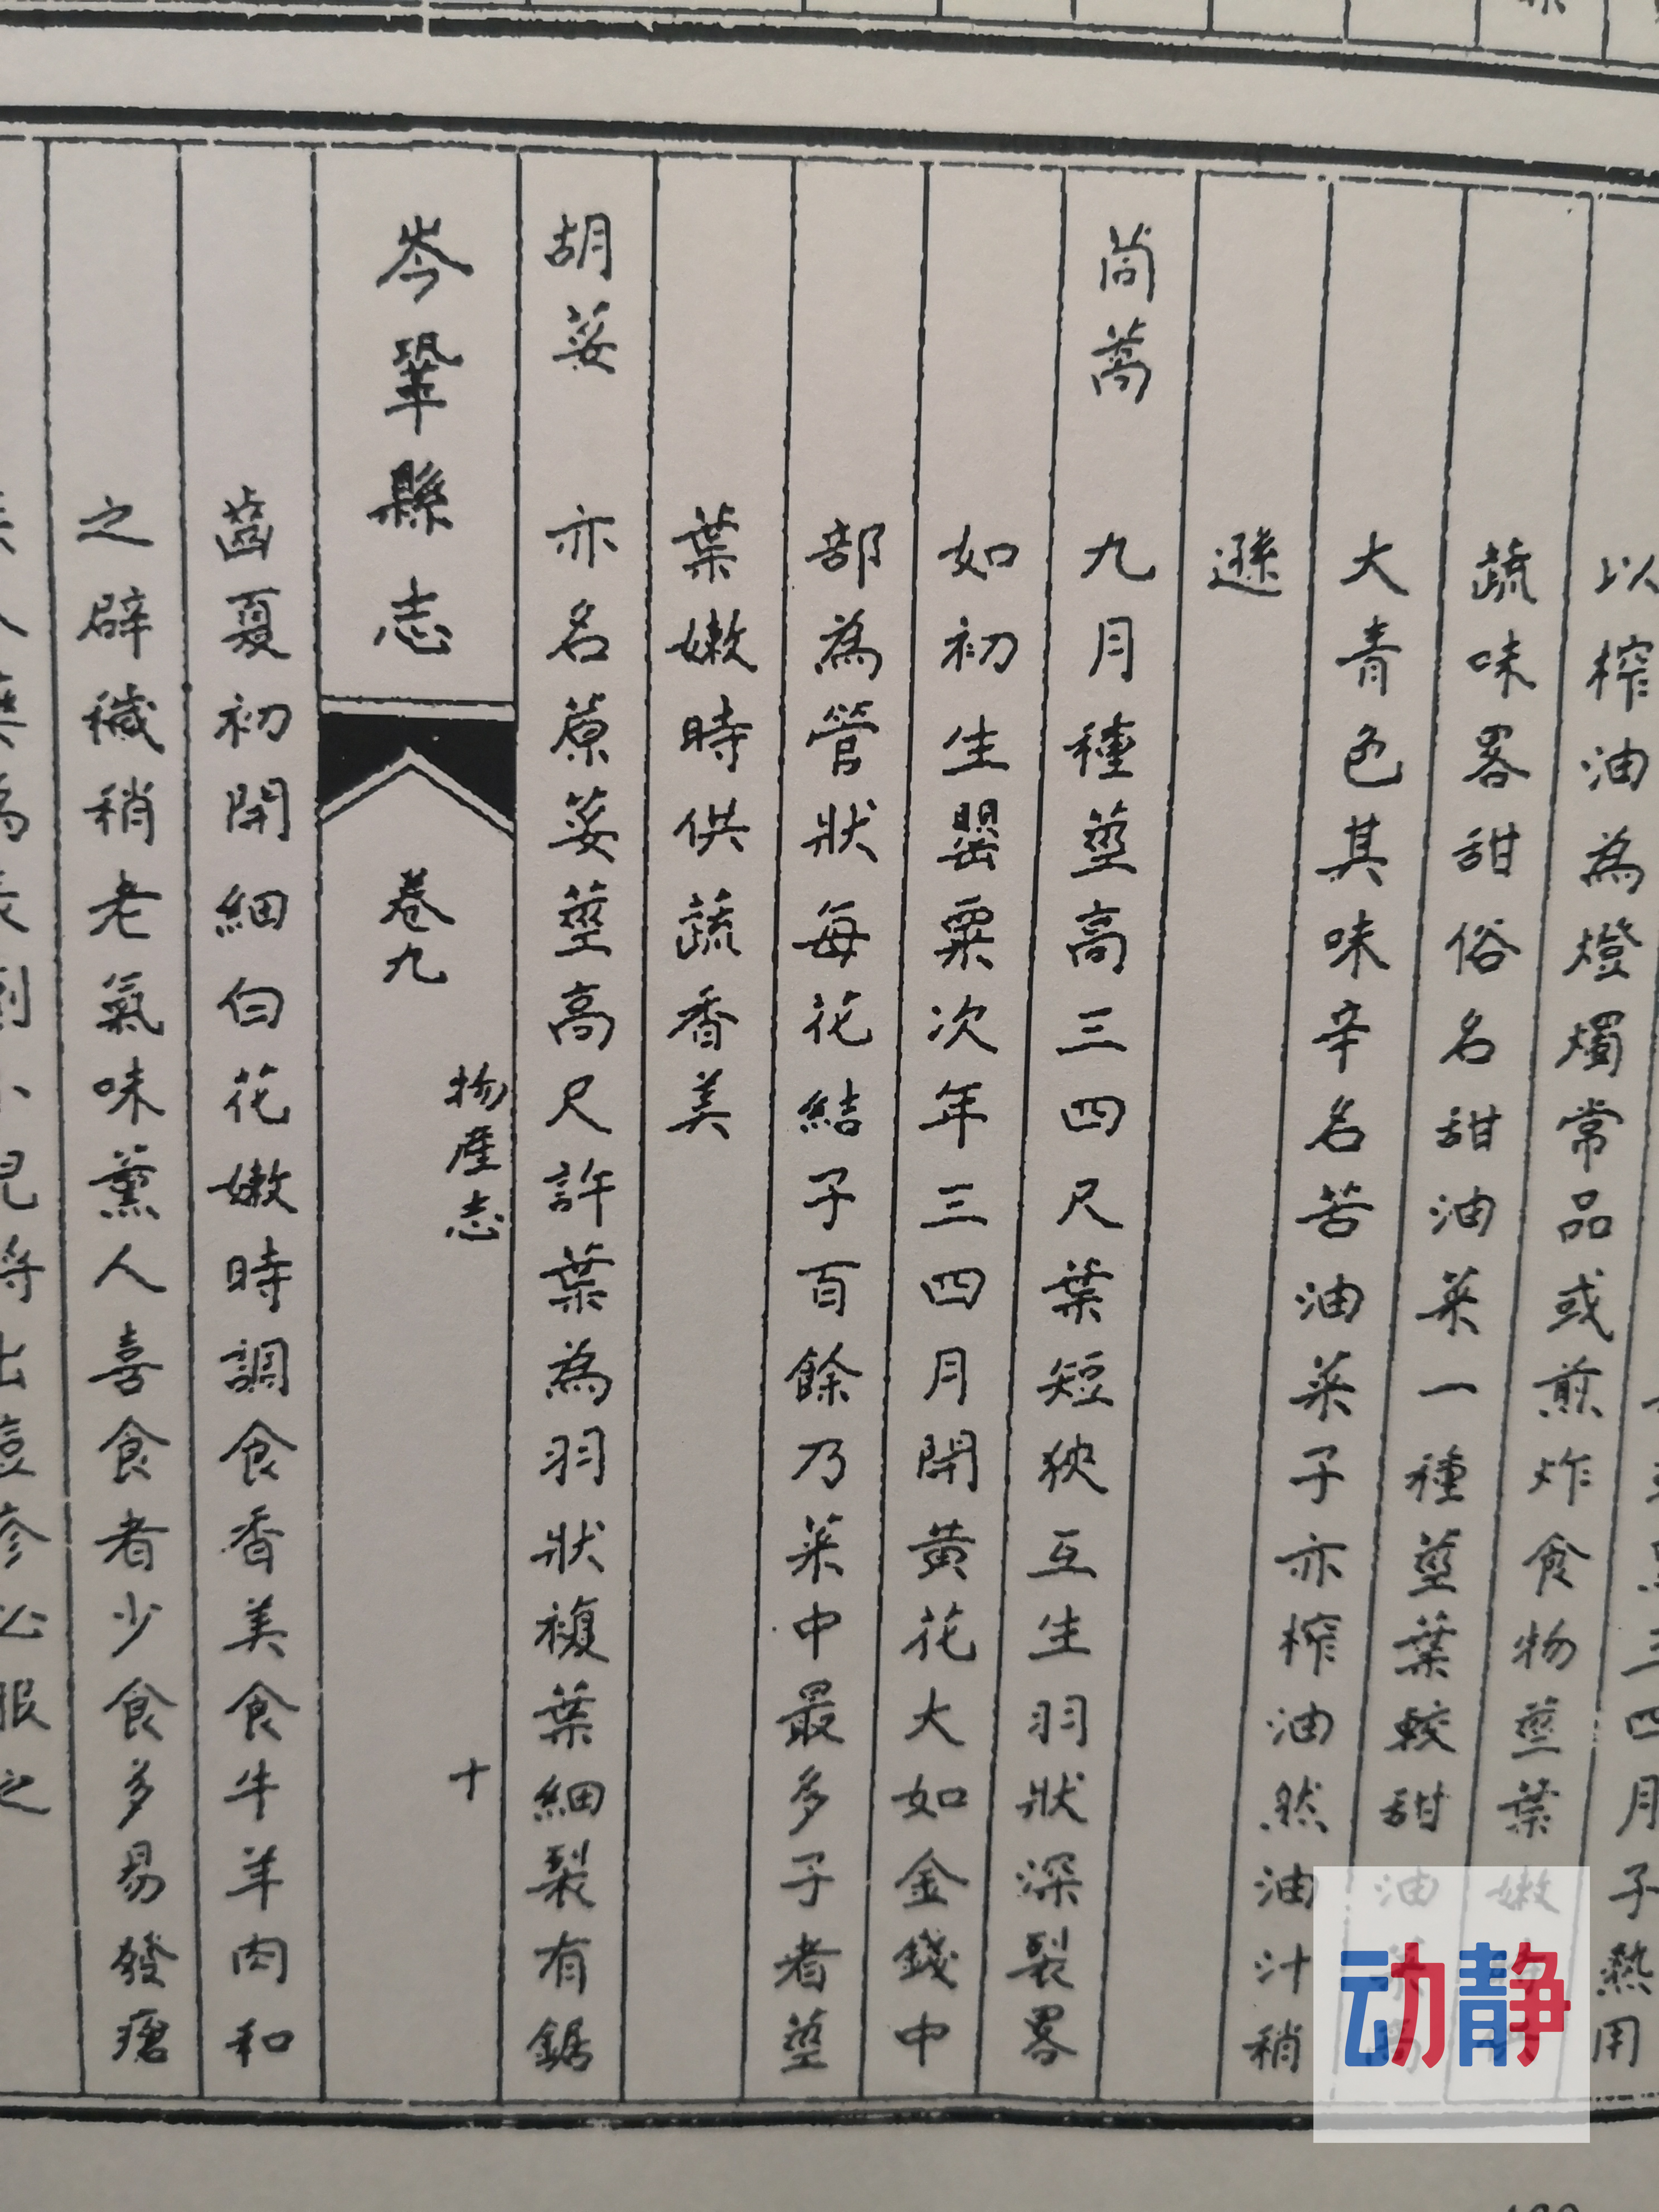 三四月子熟用
以榨油為燈燭常品或煎炸食物莖葉嫩
蔬味畧甜俗名甜油菜一種莖葉較甜油
大青色其味辛名苦油菜子亦榨油然油汁稍
遜
茼蒿 九月種莖高三四尺葉短狹互生羽狀深裂畧
如初生罌粟次年三四月開黃花大如金錢中
部為管狀每花結子百餘乃菜中最多子者莖
葉嫩時供蔬香美
胡荽 亦名蒝荽莖高尺許葉為羽狀複葉細裂有鋸
岑鞏縣志 卷九 物產志 十
齒夏初開細白花嫩時調食香美食牛羊肉和
之辟穢稍老氣味薰人喜食者少食多易發瘡
动静